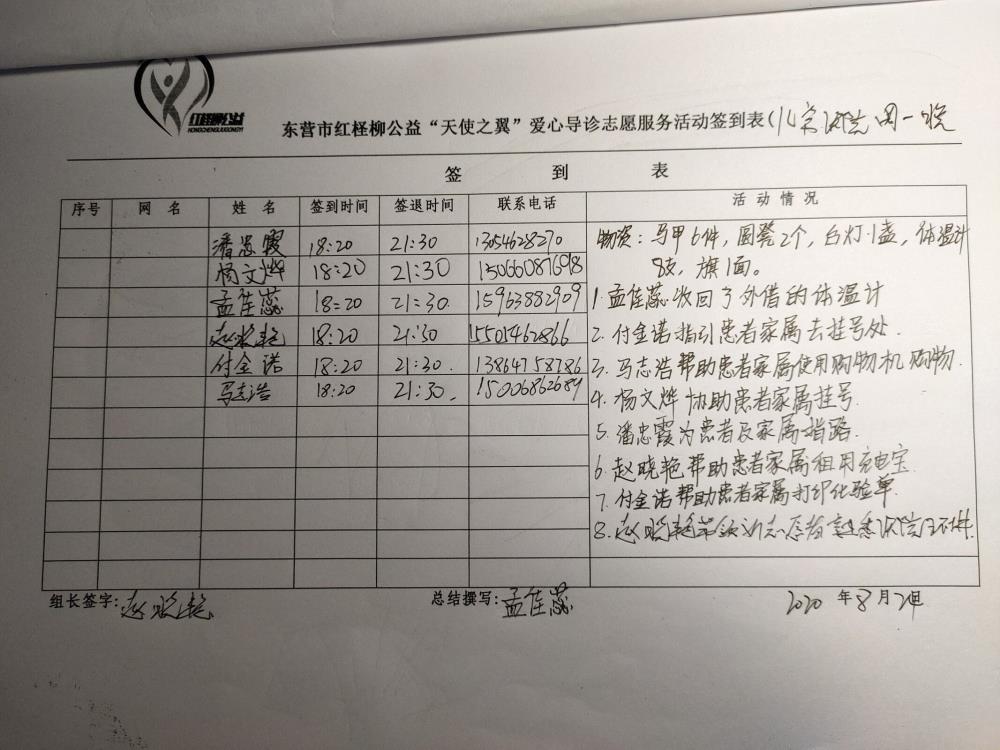 红柽柳公益
HONGCHENGLIUGONGYI
东营市红柽柳公益“天使之翼”爱心导诊志愿服务活动签到表(儿童医院 周一晚
签 到 表
序号 网 名 姓 名 签到时间 签退时间 联系电话 活 动 情 况
潘忠霞 18:20 21:30 13054628270
杨文烨 18:20 21:30 15066087698
孟佳蕊 18:20 21:30. 15963882909
赵晓艳 18:20 21:30 15501462866
付金诺 18:20 21:30. 13864758786
马志浩 18:20 21:30. 15006862689
物资:马甲6件,圆凳2个,台灯1盏,体温计
8支,旗1面。
1.孟佳蕊收回了外借的体温计
2.付金诺指引患者家属去挂号处.
3.马志浩帮助患者家属使用购物机购物.
4.杨文烨协助患者家属挂号.
5.潘忠霞为患者及家属指路.
6.赵晓艳帮助患者家属租用充电宝.
7.付金诺帮助患者家属打印化验单.
8.赵晓艳带领新志愿者熟悉医院环境.
组长签字:赵晓艳 总结撰写:孟佳蕊 2020 年 8 月